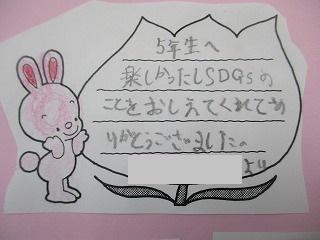 5年生へ
楽しかったしSDGsの
ことをおしえてくれてあ
りがとうございました。
より